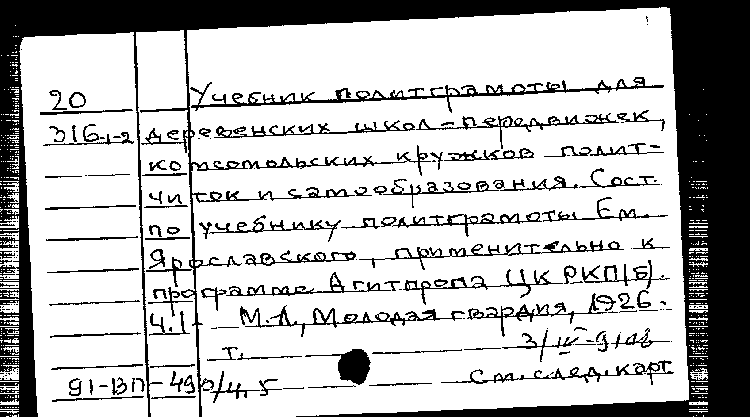 20 Учебник политграмоты для
316-1-2 деревенских школ-передвижек,
комсомольских кружков полит-
читок и самообразования. Сост.
по учебнику политграмоты Ем.
Ярославского, применительно к
программе Агитпропа ЦК РКП(б).
Ч.1- М.-Л., Молодая гвардия, 1926.
т. 3/IV-9
91-ВП-49 См. след. карт